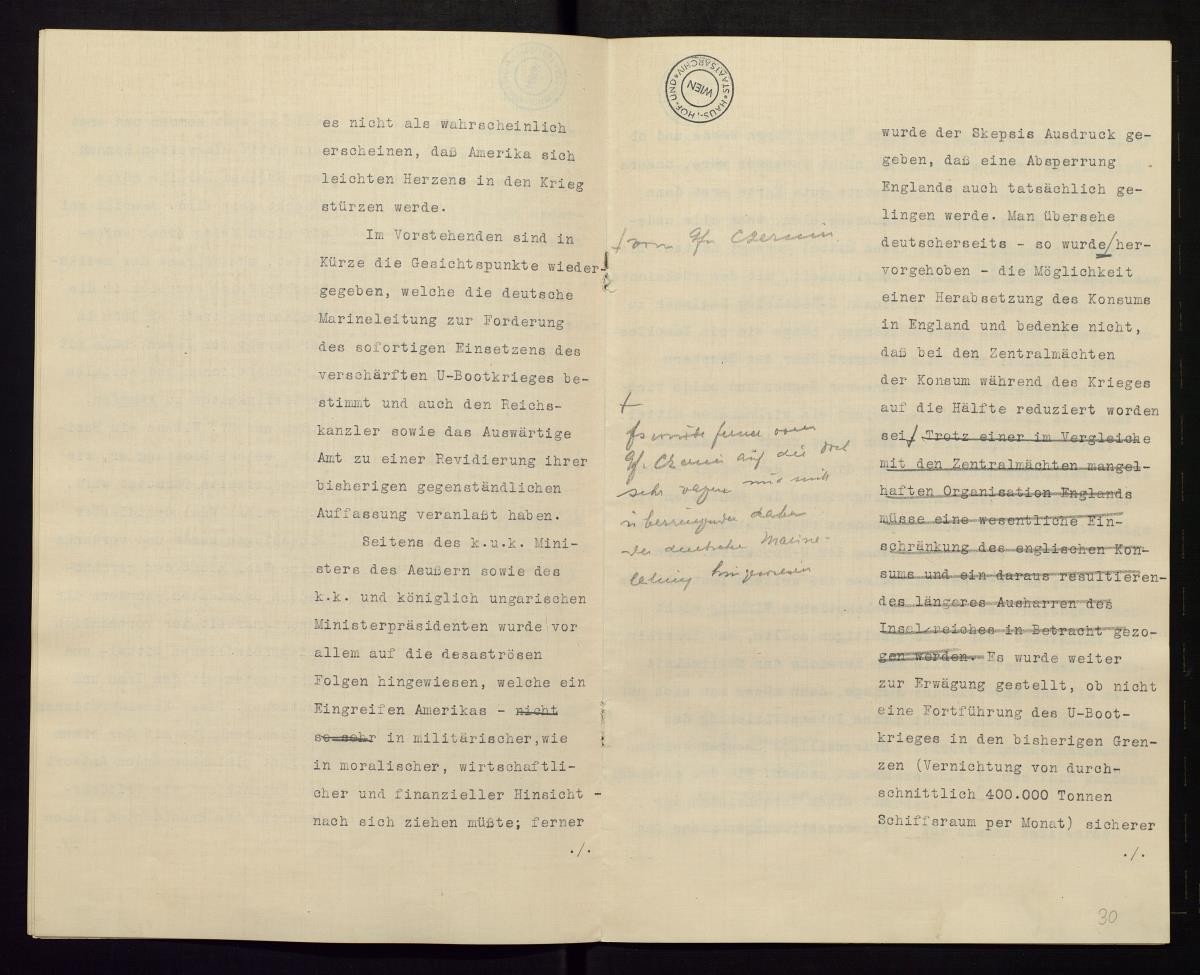 es nicht als wahrscheinlich
erscheinen, daß Amerika sich
leichten Herzens in den Krieg
stürzen werde.
Im Vorstehenden sind in
Kürze die Gesichtspunkte wieder-
gegeben, welche die deutsche
Marineleitung zur Forderung
des sofortigen Einsetzens des
verschärften U-Bootkrieges be-
stimmt und auch den Reichs-
kanzler sowie das Auswärtige
Amt zu einer Revidierung ihrer
bisherigen gegenständlichen
Auffassung veranlaßt haben.
Seitens des k.u.k. Mini-
sters des Aeußern sowie des
k.k. und königlich ungarischen
Ministerpräsidenten wurde vor
allem auf die desaströsen
Folgen hingewiesen, welche ein
Eingreifen Amerikas - nicht
so sehr in militärischer,wie
in moralischer, wirtschaftli-
cher und finanzieller Hinsicht -
nach sich ziehen müßte; ferner
./.
HAUS-, HOF- UND STAATSARCHIV
WIEN
wurde der Skepsis Ausdruck ge-
geben, daß eine Absperrung
Englands auch tatsächlich ge-
lingen werde. Man übersehe
deutscherseits - so wurde/her-
vorgehoben - die Möglichkeit
einer Herabsetzung des Konsums
in England und bedenke nicht,
daß bei den Zentralmächten
der Konsum während des Krieges
auf die Hälfte reduziert worden
sei. Trotz einer im Vergleiche
mit den Zentralmächten mangel-
haften Organisation Englands
müsse eine wesentliche Ein-
schränkung des englischen Kon-
sums und ein daraus resultieren-
des längeres Ausharren des
Inselreiches in Betracht gezo-
gen werden. Es wurde weiter
zur Erwägung gestellt, ob nicht
eine Fortführung des U-Boot-
krieges in den bisherigen Gren-
zen (Vernichtung von durch-
schnittlich 400.000 Tonnen
Schiffsraum per Monat) sicherer
./.
+ vom Gfn Czernin
+
Es wurde ferner vom
Gf. Czernin auf die
sehr vagen und nicht
überzeugenden Daten
der deutschen Marine-
leitung hingewiesen
30